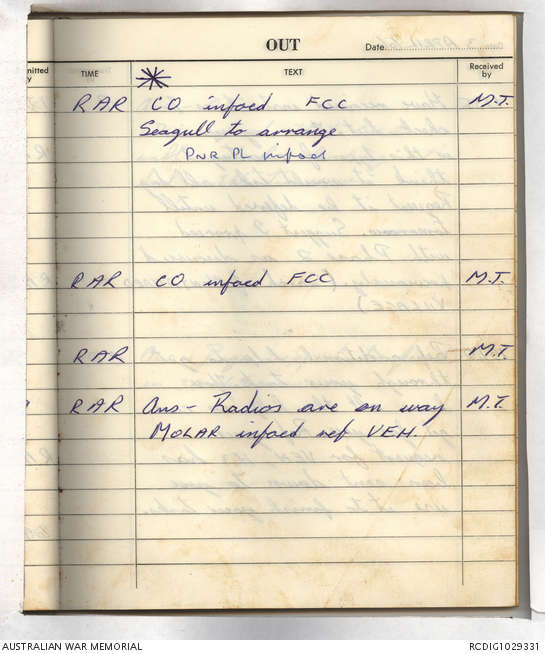 OUT
Date
mitted
y
TIME
TEXT
Received
by
RAR CO infoed FCC M.T.
Seagull to arrange
PNR PL infoed
RAR CO infoed FCC M.T.
RAR M.T.
RAR Ans - Radios are on way M.T.
MOLAR infoed ref VEH.
AUSTRALIAN WAR MEMORIAL
RCDIG1029331